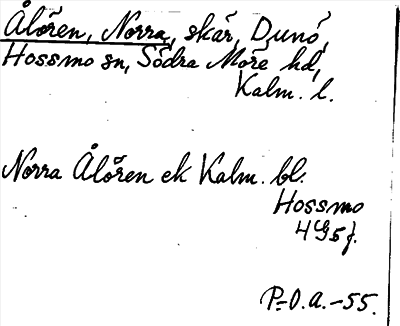 Ålören, Norra, skär, Dunö,
Hossmo sn, Södra Möre hd,
Kalm. l.
Norra Ålören ek Kalm. bl.
Hossmo
4G5f.
P.-O.a.-55.